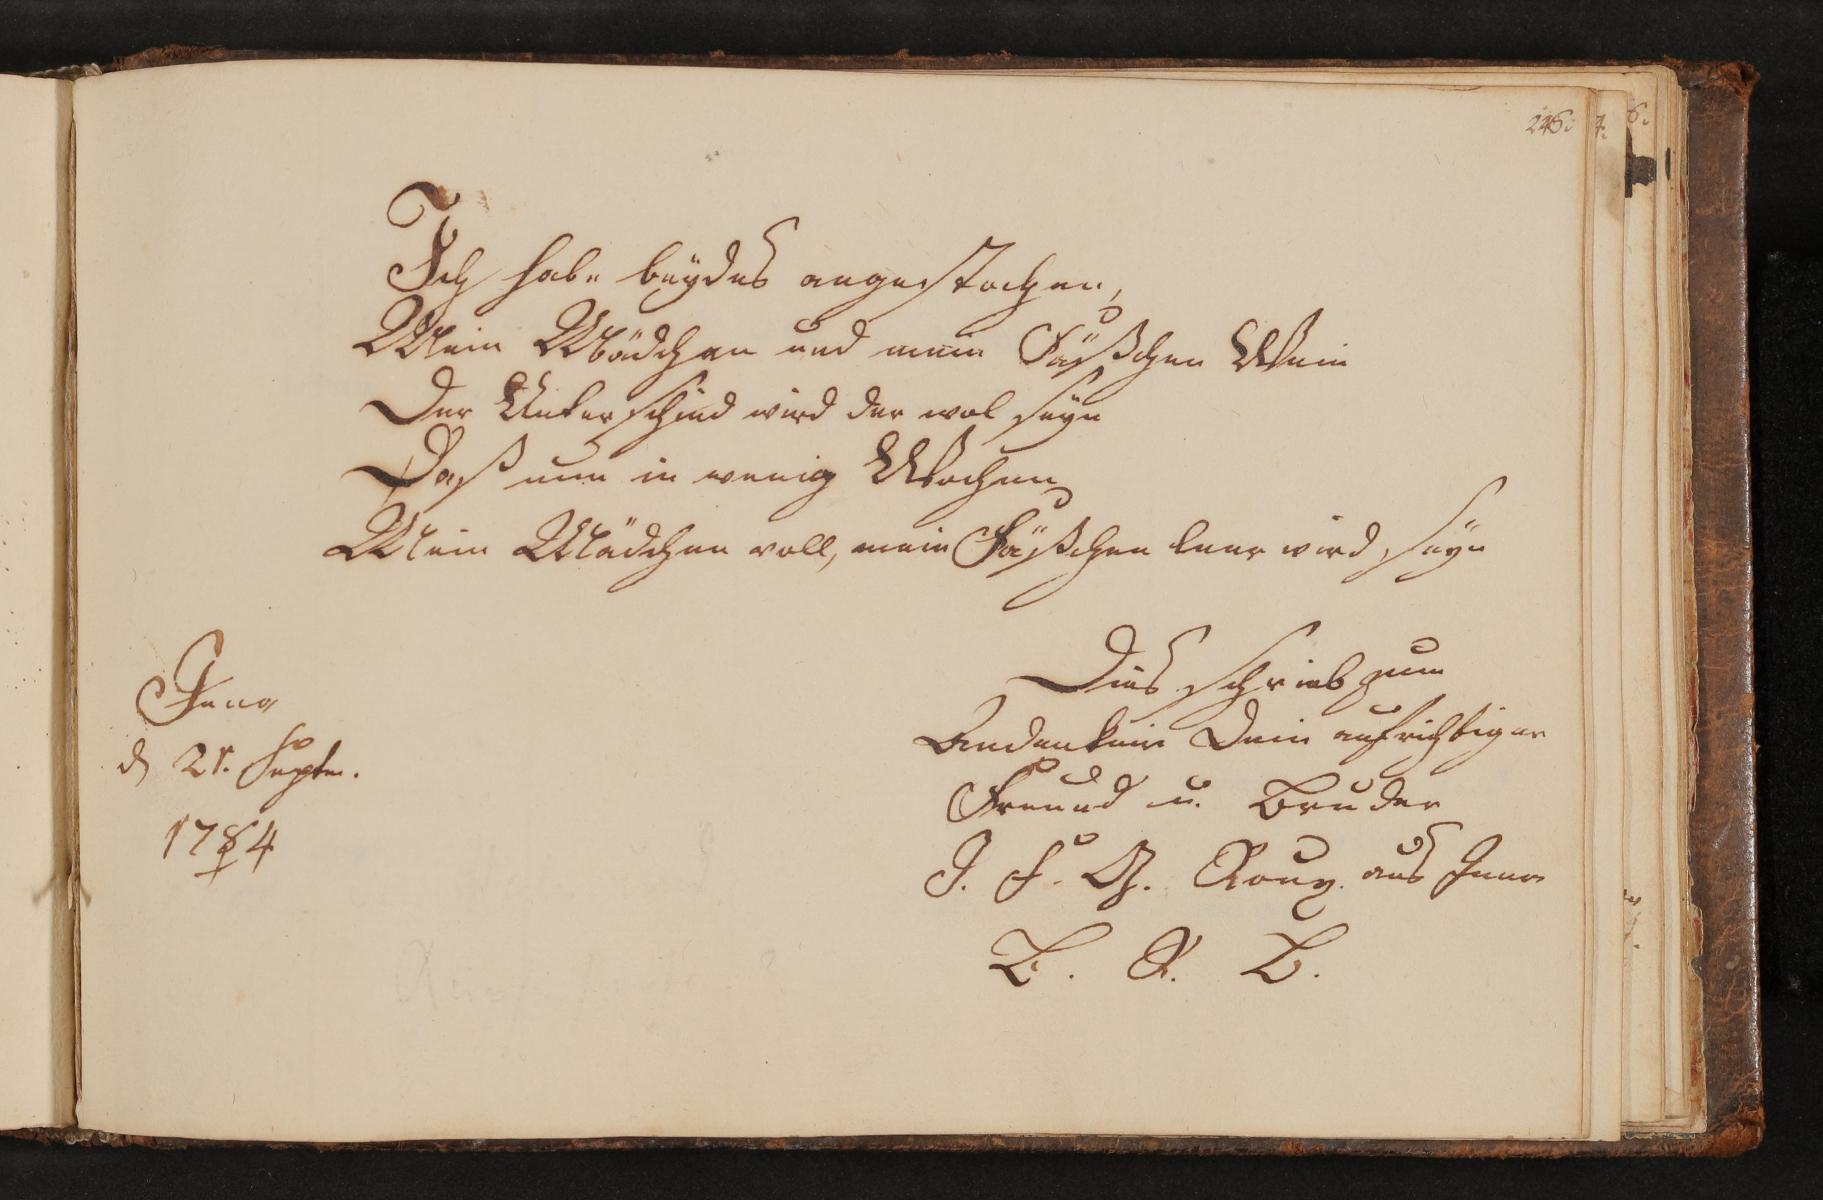 245.
Ich habe beydes angestochen,
Mein Mädchen und mein Fäßchen Wein
Der Unterschied wird der wol seyn
Daß nun in wenig Wochen
Mein Mädchen voll, mein Fäßchen leer wird seyn
Jena
d 21. Septm.
1784
Dies schrieb zum
Andenken Dein aufrichtiger
Freund u. Bruder
J. F. Roux aus Jena